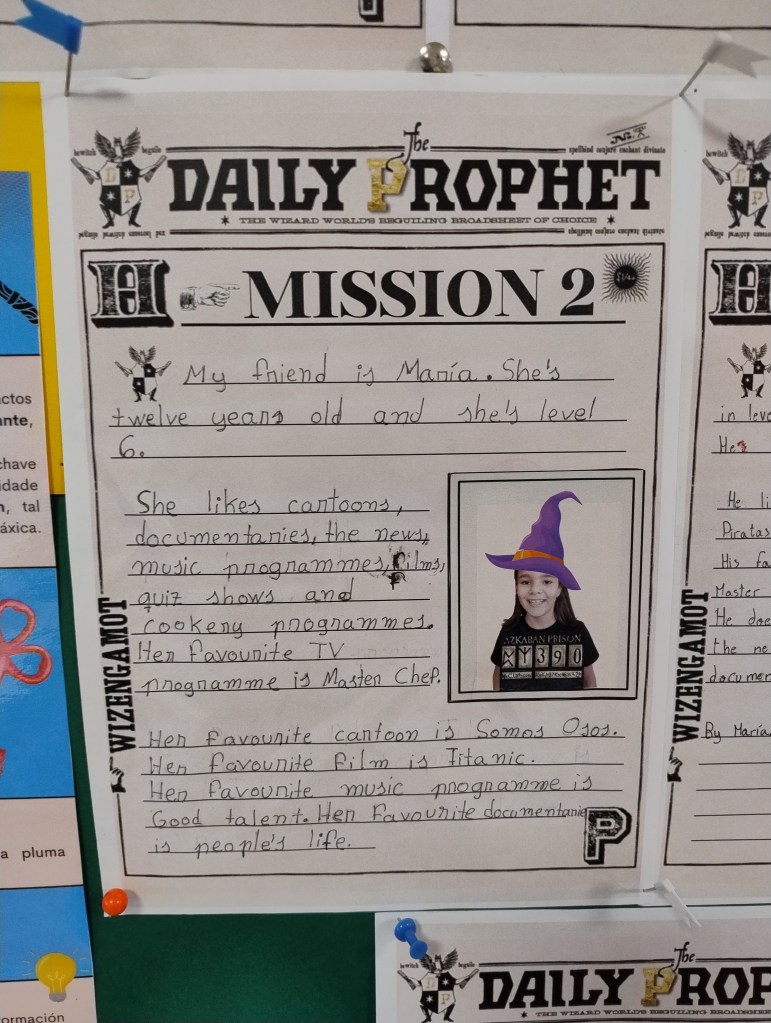 The
DAILY PROPHET
THE WIZARD WORLD'S BEGUILING BROADSHEET OF CHOICE
bewitch
beguile
spellbind conjure enchant divinate
H
MISSION 2
My friend is María. She's
twelve years old and she's level
6.
She likes cartoons,
documentaries, the news,
music programmes, films,
quiz shows and
cookery programmes.
Her favourite TV
programme is Master Chef.
AZKABAN PRISON
390
WIZENGAMOT
Her favourite cartoon is Somos Osos.
Her favourite film is Titanic.
Her favourite music programme is
Good talent. Her favourite documentarie
is people's life.
P
ctos
ante,
chave
idade
n, tal
áxica.
a pluma
ormación
H
in leve
He's
He li
Piratas
His fa
Master
He doe
the ne
documen
WIZENGAMOT
By María
bewitch
beguile
The
DAILY PROP
THE WIZARD WORLD'S BEGUILING BROADSHEET O